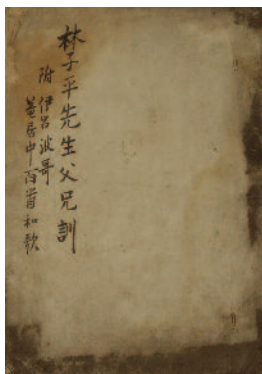 林子平先生父兄訓
附 伊呂波哥
蟄居中百首和歌